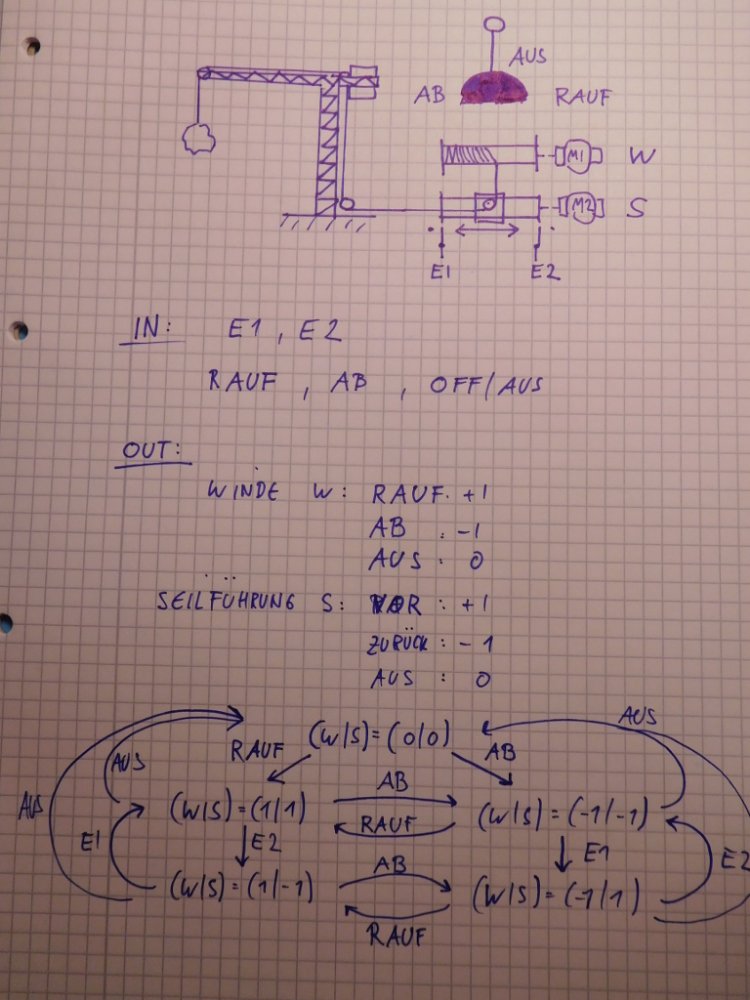 AUS
AB RAUF
M1 W
M2 S
E1 E2
IN: E1, E2
RAUF, AB, OFF/AUS
OUT:
WINDE W: RAUF: +1
AB: -1
AUS: 0
SEILFÜHRUNG S: VOR: +1
ZURÜCK: -1
AUS: 0
AUS
RAUF (W|S)=(0|0) AB
AUS AB
AUS (W|S)=(1|1) RAUF (W|S)=(-1|-1)
E1 E2 E1 E2
(W|S)=(1|-1) AB (W|S)=(-1|1)
RAUF